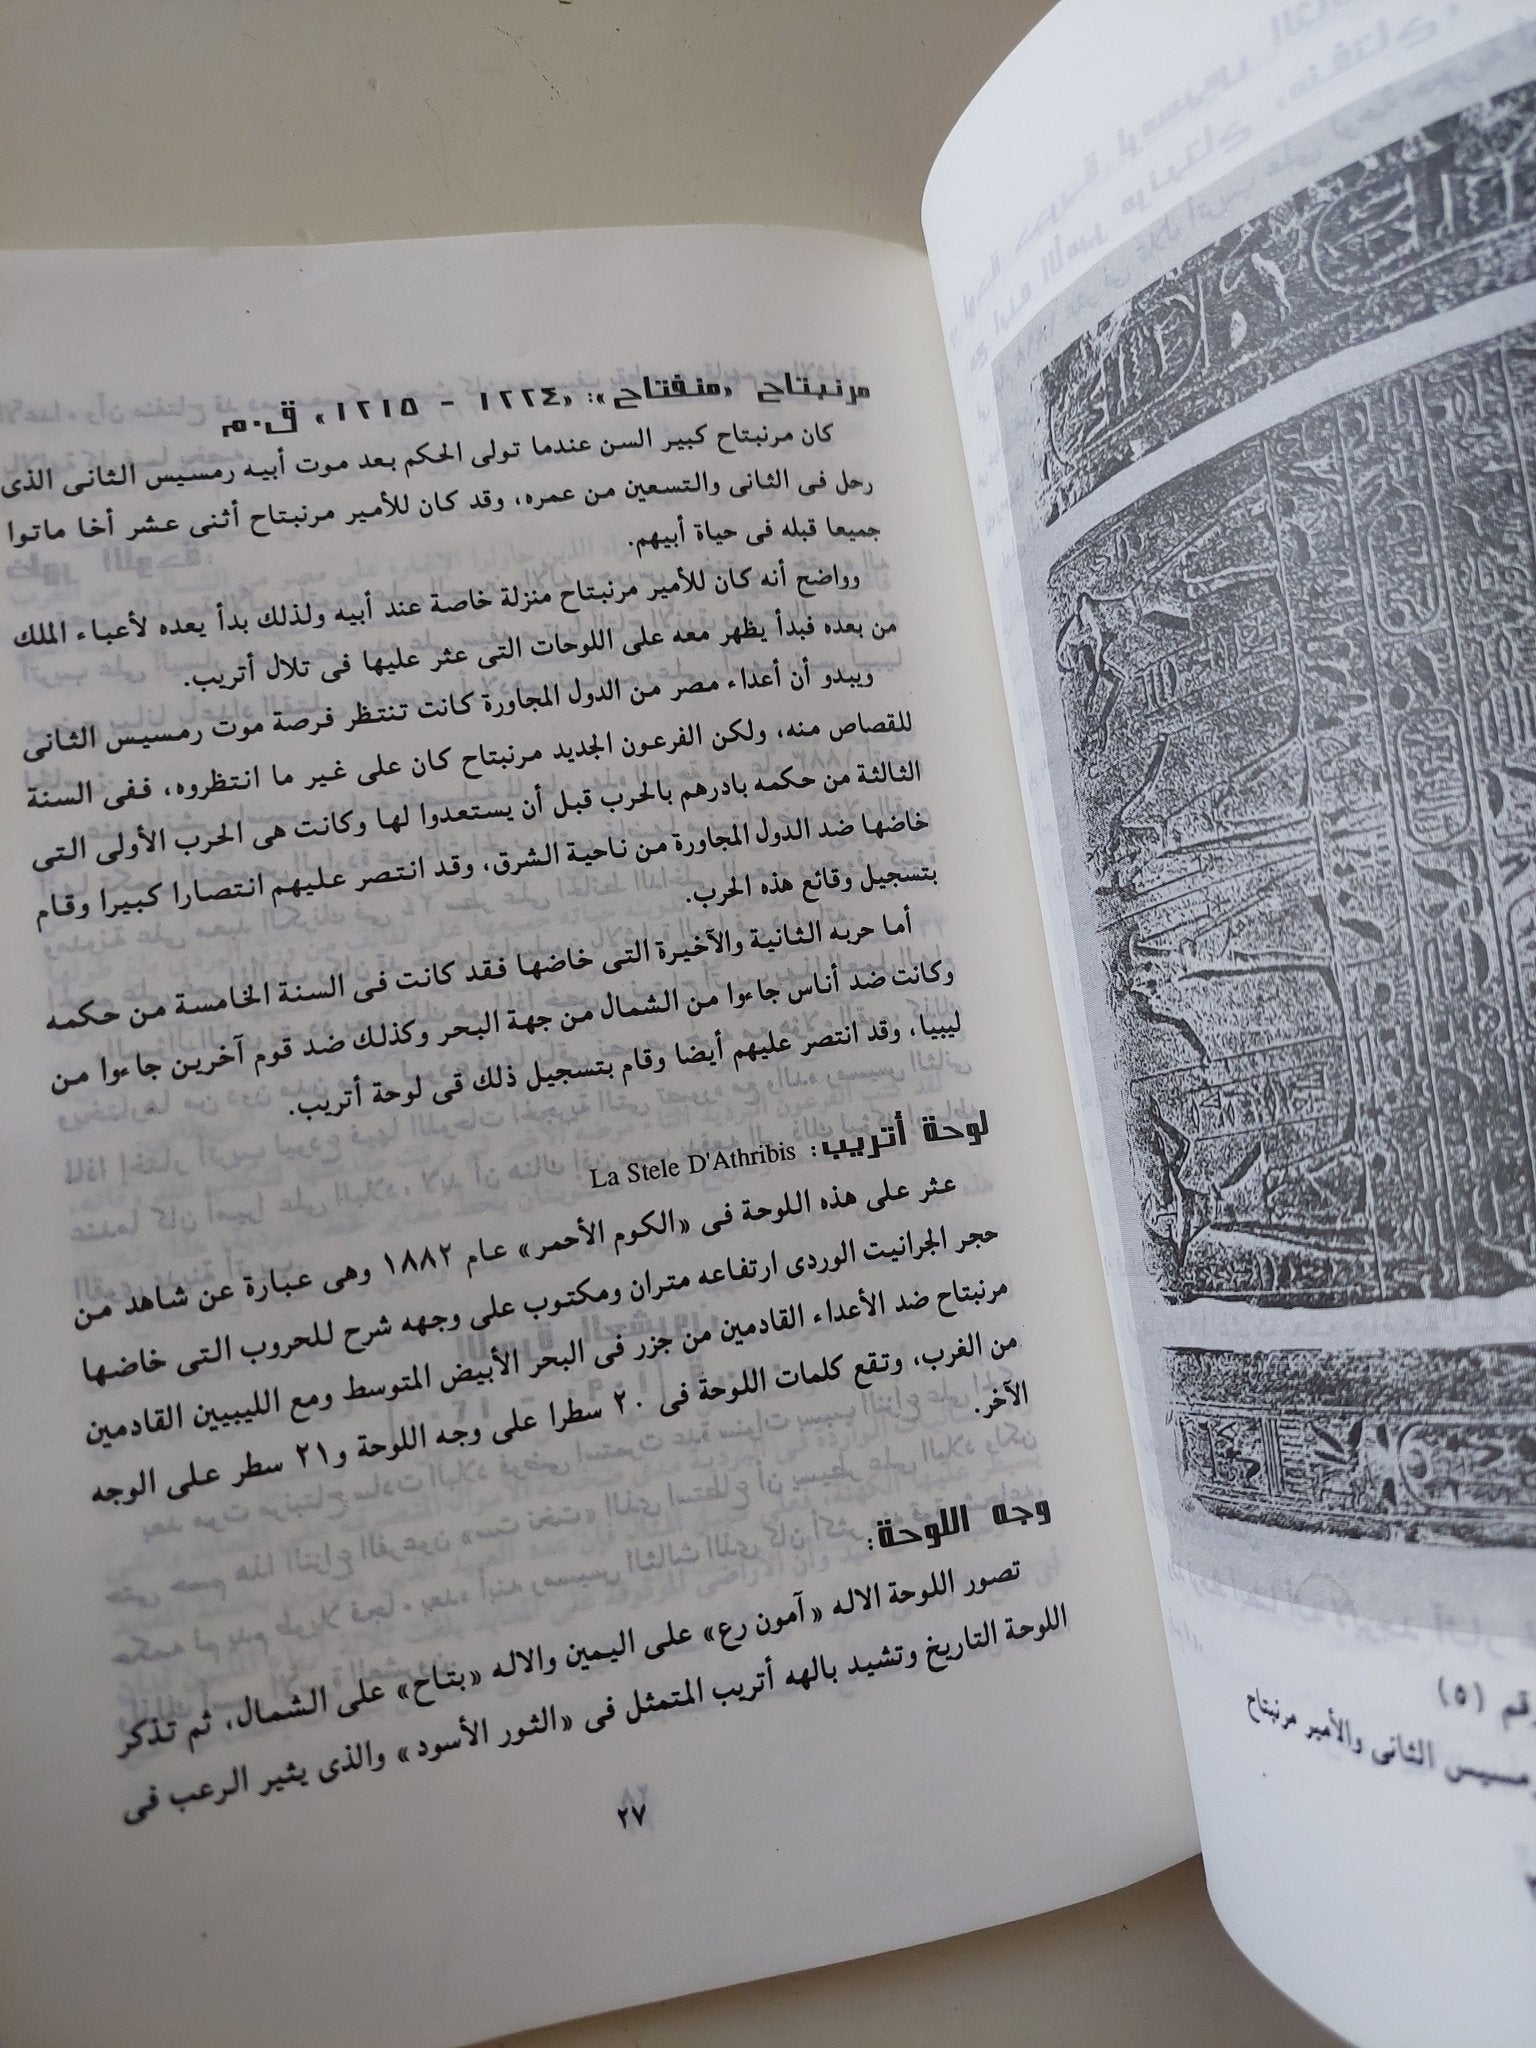 مرنبتاح «منفتاح»: «١٢٢٤ - ١٢١٥» ق.م
كان مرنبتاح كبير السن عندما تولى الحكم بعد موت أبيه رمسيس الثانى الذى
رحل فى الثانى والتسعين من عمره، وقد كان للأمير مرنبتاح أثنى عشر أخا ماتوا
جميعا قبله فى حياة أبيهم.
وواضح أنه كان للأمير مرنبتاح منزلة خاصة عند أبيه ولذلك بدأ يعده لأعباء الملك
من بعده فبدأ يظهر معه على اللوحات التى عثر عليها فى تلال أتريب.
ويبدو أن أعداء مصر من الدول المجاورة كانت تنتظر فرصة موت رمسيس الثانى
للقصاص منه، ولكن الفرعون الجديد مرنبتاح كان على غير ما انتظروه، ففى السنة
الثالثة من حكمه بادرهم بالحرب قبل أن يستعدوا لها وكانت هى الحرب الأولى التى
خاضها ضد الدول المجاورة من ناحية الشرق، وقد انتصر عليهم انتصارا كبيرا وقام
بتسجيل وقائع هذه الحرب.
أما حربه الثانية والآخيرة التى خاضها فقد كانت فى السنة الخامسة من حكمه
وكانت ضد أناس جاءوا من الشمال من جهة البحر وكذلك ضد قوم آخرين جاءوا من
ليبيا، وقد انتصر عليهم أيضا وقام بتسجيل ذلك قى لوحة أتريب.
لوحة أتريب: La Stele D'Athribis
عثر على هذه اللوحة فى «الكوم الأحمر» عام ١٨٨٢ وهى عبارة عن شاهد من
حجر الجرانيت الوردى ارتفاعه متران ومكتوب على وجهه شرح للحروب التى خاضها
مرنبتاح ضد الأعداء القادمين من جزر فى البحر الأبيض المتوسط ومع الليبيين القادمين
من الغرب، وتقع كلمات اللوحة فى ٢٠ سطرا على وجه اللوحة و٢١ سطر على الوجه
الآخر.
وجه اللوحة:
تصور اللوحة الاله «آمون رع» على اليمين والاله «بتاح» على الشمال، ثم تذكر
اللوحة التاريخ وتشيد بالهه أتريب المتمثل فى «الثور الأسود» والذى يثير الرعب فى
٢٧
رقم (٥)
الثانى والأمير مرنبتاح